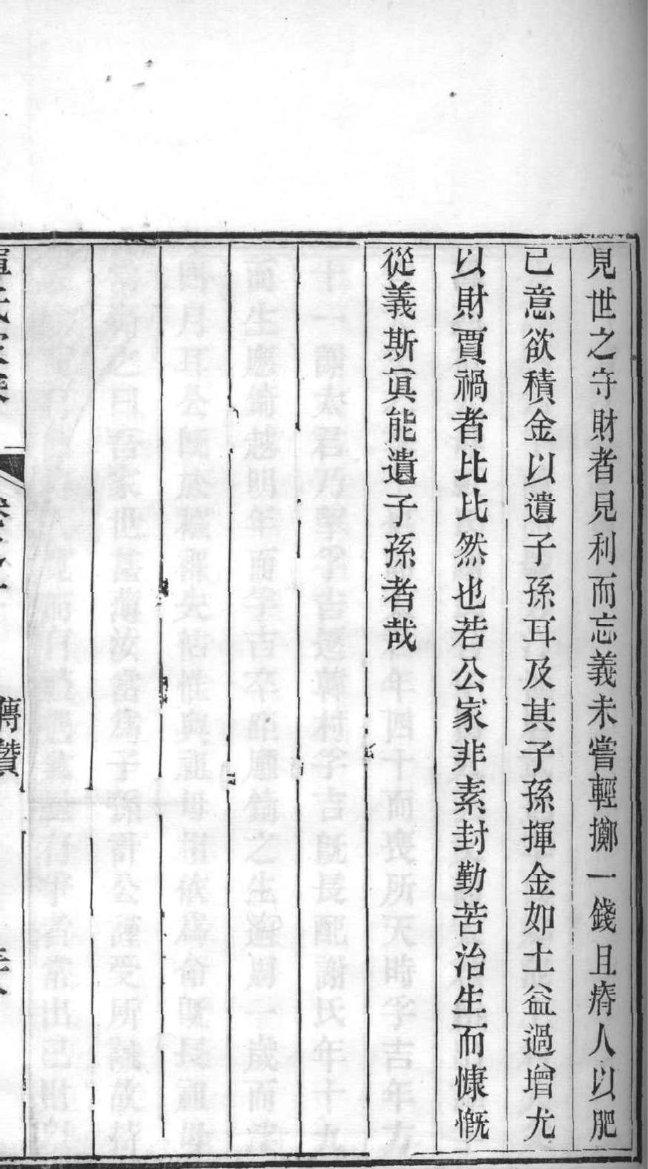 見世之守財者見利而忘義未嘗輕擲一錢且瘠人以肥
己意欲積金以遺子孫耳及其子孫揮金如土益過增尤
以財賈禍者比比然也若公家非素封勤苦治生而慷慨
從義斯眞能遺子孫者哉
傳贊